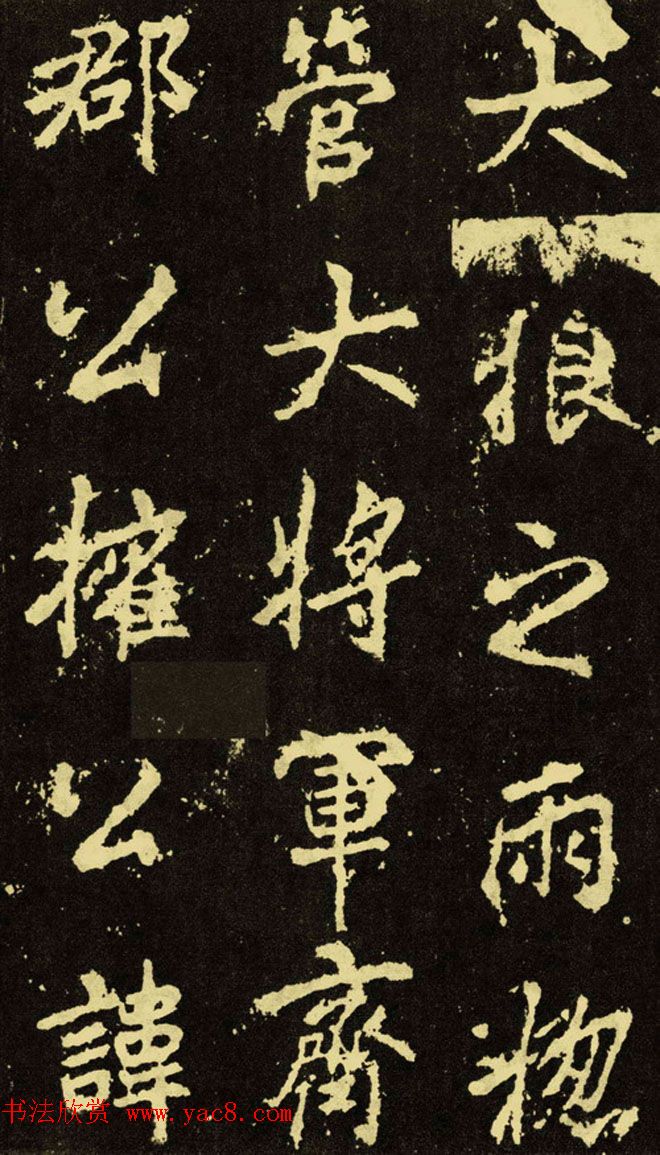 大狼之雨惣
管大將軍齊
郡公擢公諱
书法欣赏 www.yac8.com